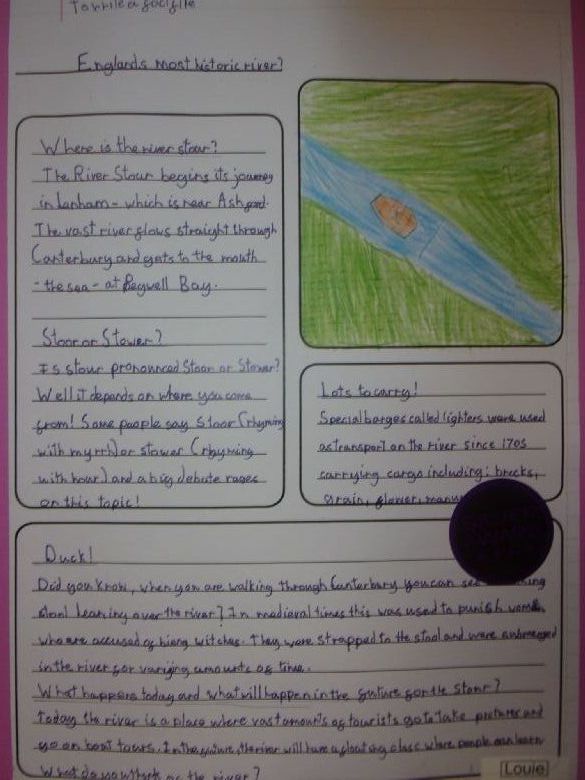 To write a factfile
Englands most historic river?
Where is the river stour?
The River Stour begins its journey
in Lenham - which is near Ashford.
The vast river flows straight through
Canterbury and gets to the mouth
- the sea - at Pegwell Bay.
Stoor or Stower?
Is stour pronounced Stoor or Stower?
Well it depends on where you come
from! Some people say Stoor (rhyming
with myrrh) or stower (rhyming
with hour) and a big debate rages
on this topic!
Lots to carry!
Special barges called lighters were used
as transport on the river since 1705
carrying cargo including: bricks,
grain, flower,
Duck!
Did you know, when you are walking through Canterbury you can see
stool leaning over the river? In medieval times this was used to punish women
who are accused of bieng witches. They were strapped to the stool and were submerged
in the river for varijng amounts of time.
What happens today and what will happen in the future for the Stour?
Today the river is a place where vast amounts of tourists go to take pictures and
go on boat tours. In the future, the river will have a floating class where people can learn
What do you think of the river?
Louie